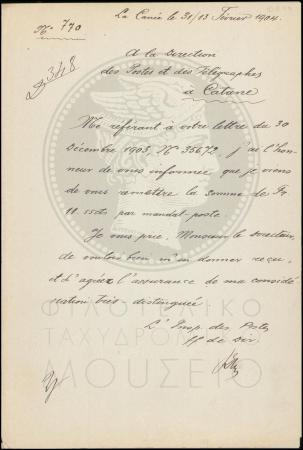 La Canée le 31/13 Février 1904.
No 770
A la Direction
des Postes et des Télégraphes
à Catane
Me référant à votre lettre du 30
Décembre 1903, No 35672, j'ai l'hon-
neur de vous informer que je viens
de vous remettre la somme de Fr
11.15 par mandat-poste
Je vous prie, Monsieur le Directeur,
de vouloir bien m'en donner reçu,
et d'agréer l'assurance de ma considé-
ration très-distinguée.
L'Insp. des Postes
ff de Dir.
ΦΙΛΟΤΕΛΙΚΟ
ΤΑΧΥΔΡΟΜΙΚΟ
ΜΟΥΣΕΙΟ